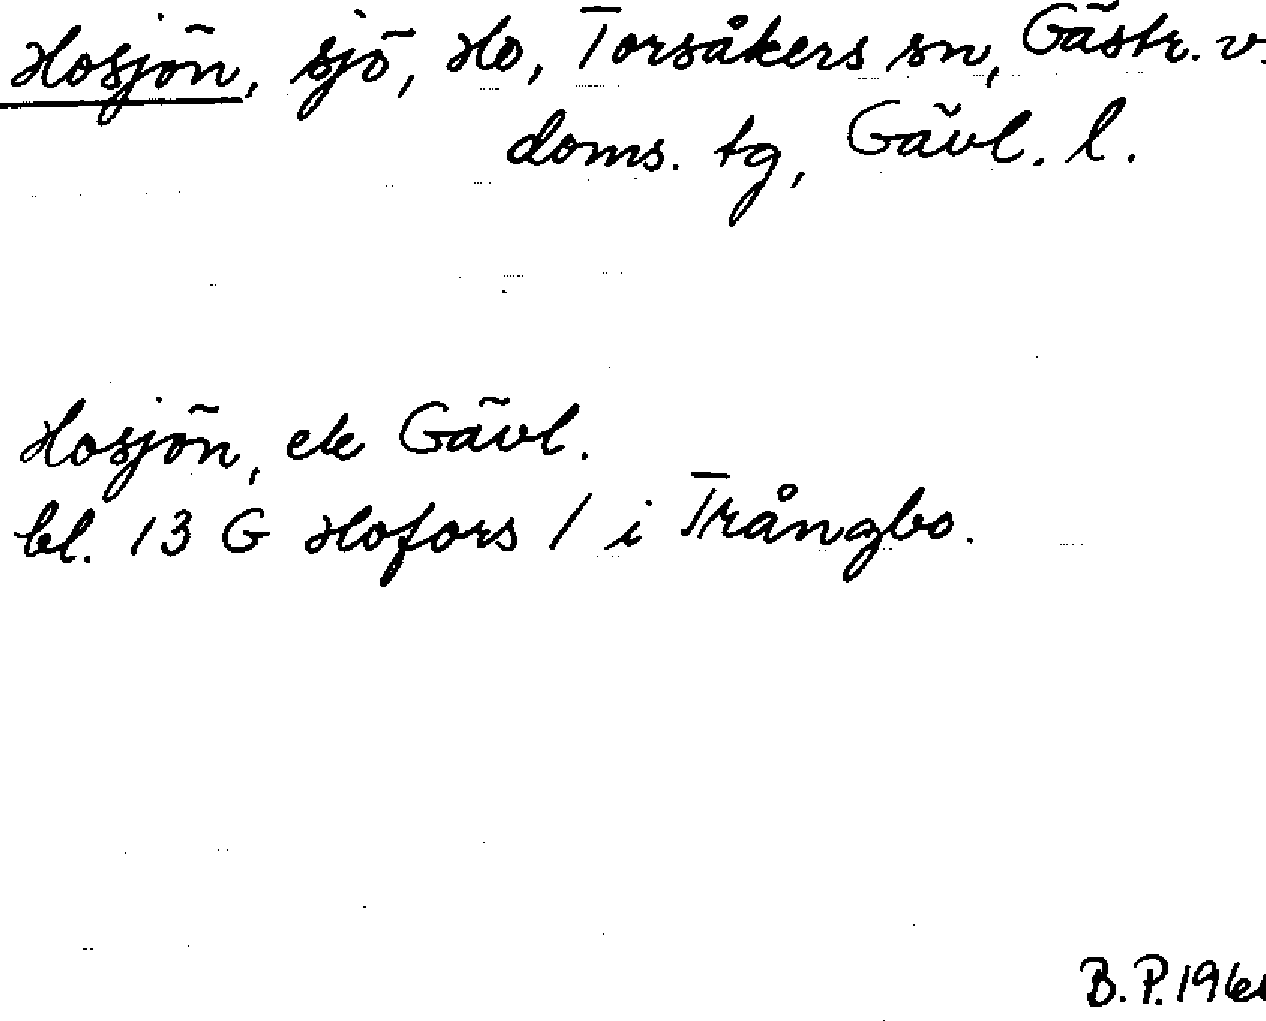 Hosjön, sjö, Ho, Torsåkers sn, Gästr. v.
doms. tg, Gävl. l.
Hosjön, ek Gävl.
bl. 13 G Hofors / i Trångbo.
B.P. 196